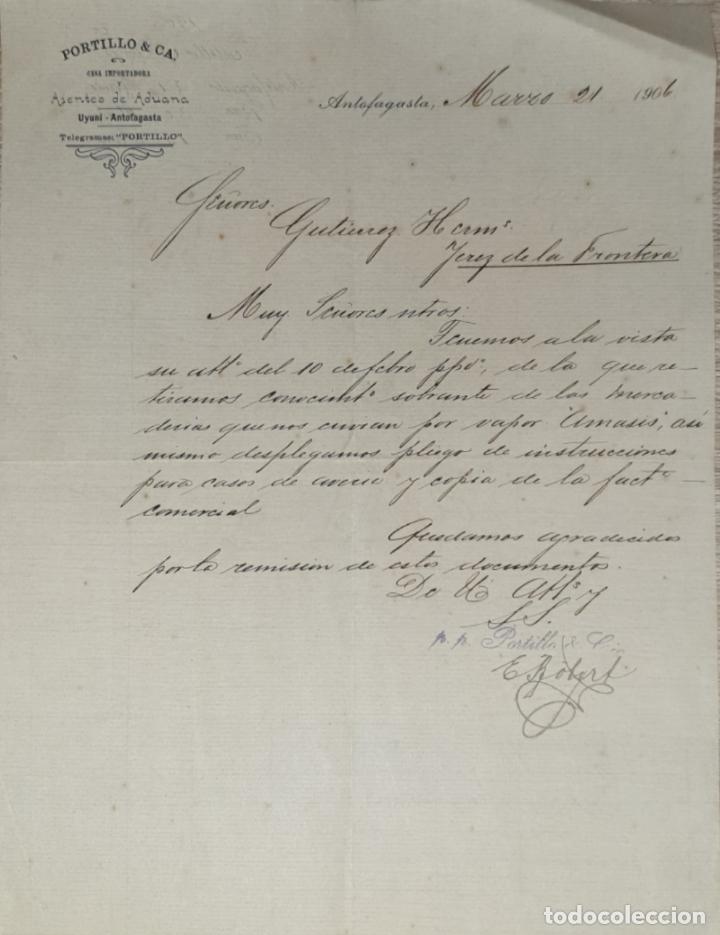 PORTILLO & CA.
CASA IMPORTADORA
Y
Asentes de Aduana
Uyuni - Antofagasta
Telegramas: "PORTILLO"
Antofagasta, Marzo 21 1906
Señores.
Gutierrez Hermˢ.
Jerez de la Frontera
Muy Señores ntros:
Tenemos a la vista
su attᵃ del 10 de febro ppdᵒ, de la que re-
tiramos conocimtᵒ sobrante de las merca-
derias que nos envian por vapor "Amasis", asi
mismo desplegamos pliego de instrucciones
para casos de averia y copia de la factᵃ
comercial
Quedamos agradecidos
por la remision de estos documentos.
De U. Attˢ y
S.S.
p. p. Portillo & Cia
E Robert
todocoleccion
todocoleccion.net